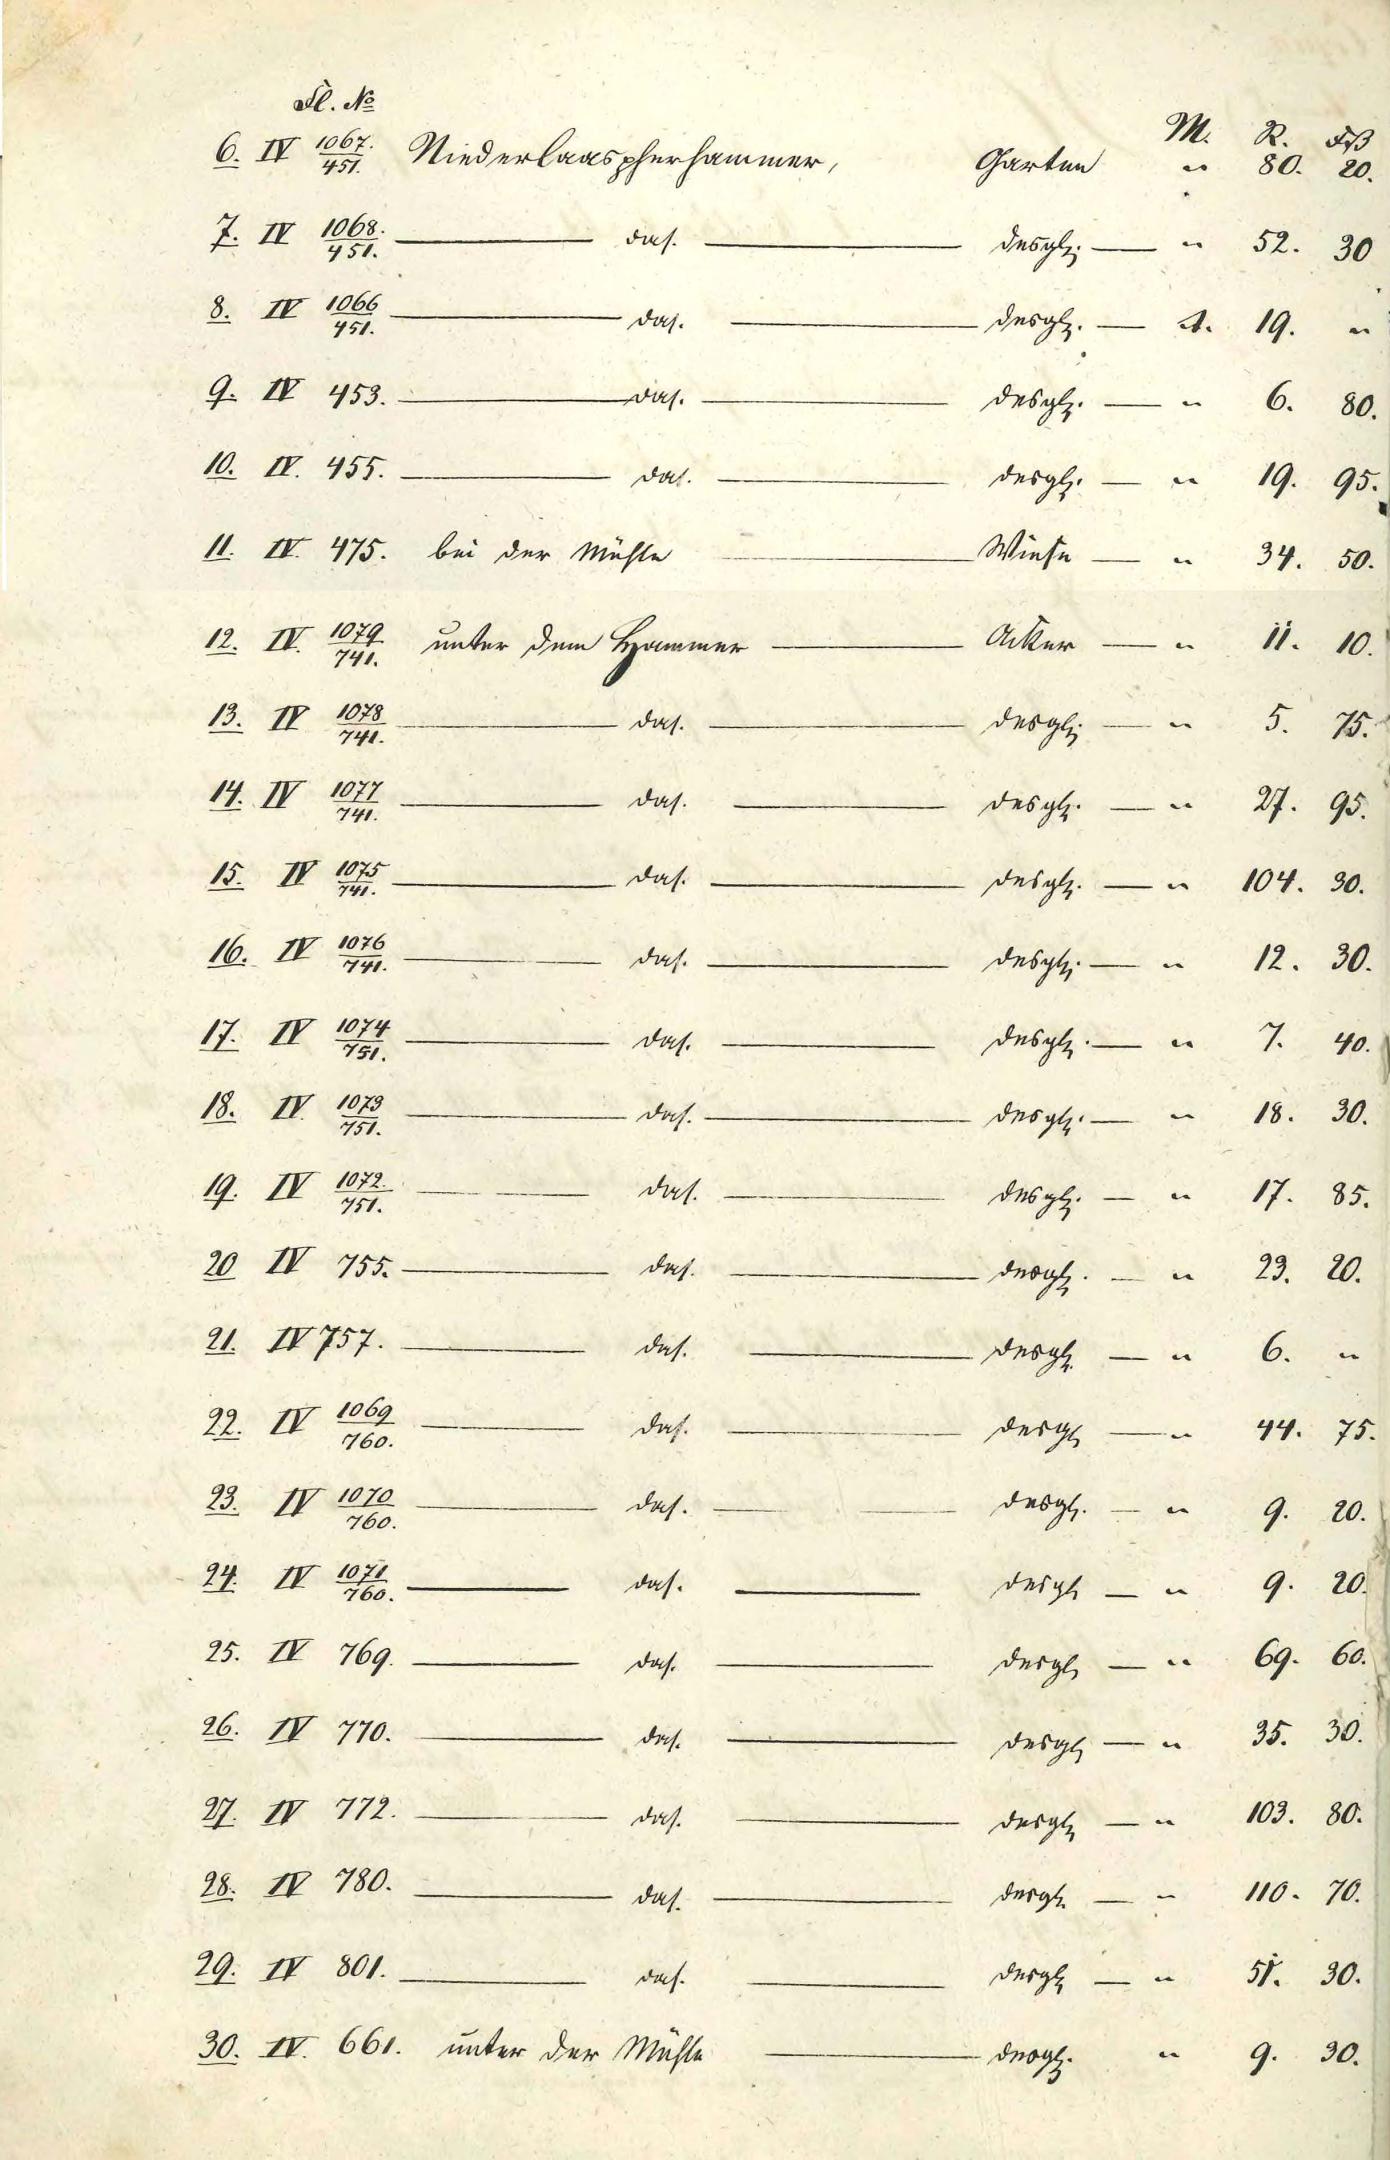 Fl. No M. R. Fß
6. IV 1067./451. Niederlaaspherhammer, Garten " 80. 20.
7. IV 1068./451. — das. — desgl. — " 52. 30
8. IV 1066/451. — das. — desgl. — 1. 19. "
9. IV 453. — das. — desgl. — " 6. 80.
10. IV. 455. — das. — desgl. — " 19. 95.
11. IV. 475. bei der Mühle — Wiese — " 34. 50.
12. IV. 1079/741. unter dem Hammer — Acker — " 11. 10.
13. IV 1078/741. — das. — desgl. — " 5. 75.
14. IV 1077/741. — das. — desgl. — " 27. 95.
15. IV 1075/741. — das. — desgl. — " 104. 30.
16. IV 1076/741. — das. — desgl. — " 12. 30.
17. IV 1074/751. — das. — desgl. — " 7. 40.
18. IV 1073/751. — das. — desgl. — " 18. 30.
19. IV 1072./751. — das. — desgl. — " 17. 85.
20 IV 755. — das. — desgl. — " 23. 20.
21. IV 757. — das. — desgl. — " 6. "
22. IV 1069/760. — das. — desgl — " 44. 75.
23. IV 1070/760. — das. — desgl. — " 9. 20.
24. IV 1071/760. — das. — desgl — " 9. 20.
25. IV 769. — das. — desgl — " 69. 60.
26. IV 770. — das. — desgl — " 35. 30.
27. IV 772. — das. — desgl — " 103. 80.
28. IV 780. — das. — desgl. — " 110. 70.
29. IV 801. — das. — desgl — " 51. 30.
30. IV. 661. unter der Mühle — desgl. " 9. 30.